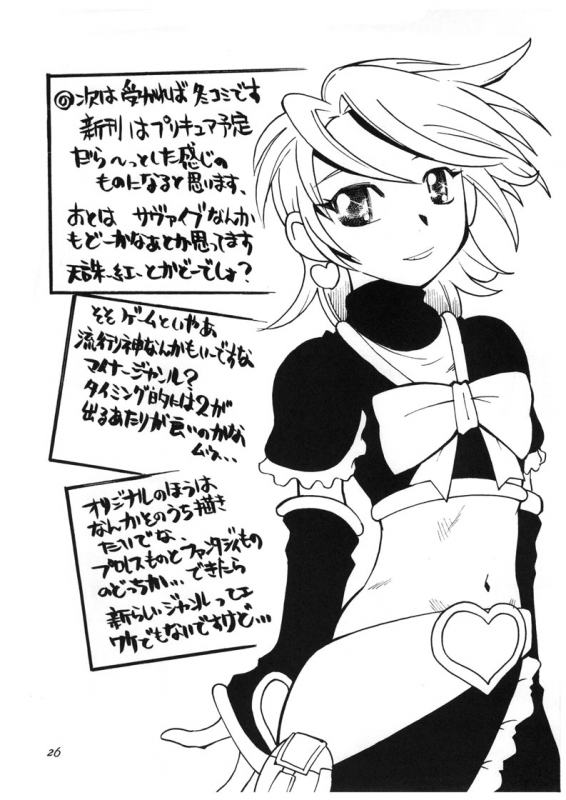 ◎次は受かれば冬コミです
新刊はプリキュア予定
だら〜っとした感じの
ものになると思います、
あとは サヴァイブなんか
もどーかなぁとか思ってます
天誅-紅-とかどーでしょ?
そそ ゲームといやあ
流行り神なんかもいーですな
マイナージャンル?
タイミング的には2が
出るあたりが良いのかな
ムゥ…
オリジナルのほうは
なんかそのうち描き
たいでな、
プロレスものとファンタジィもの
のどっちか…できたら
新らしいジャンルってェ
ワケでもないですけど…
26